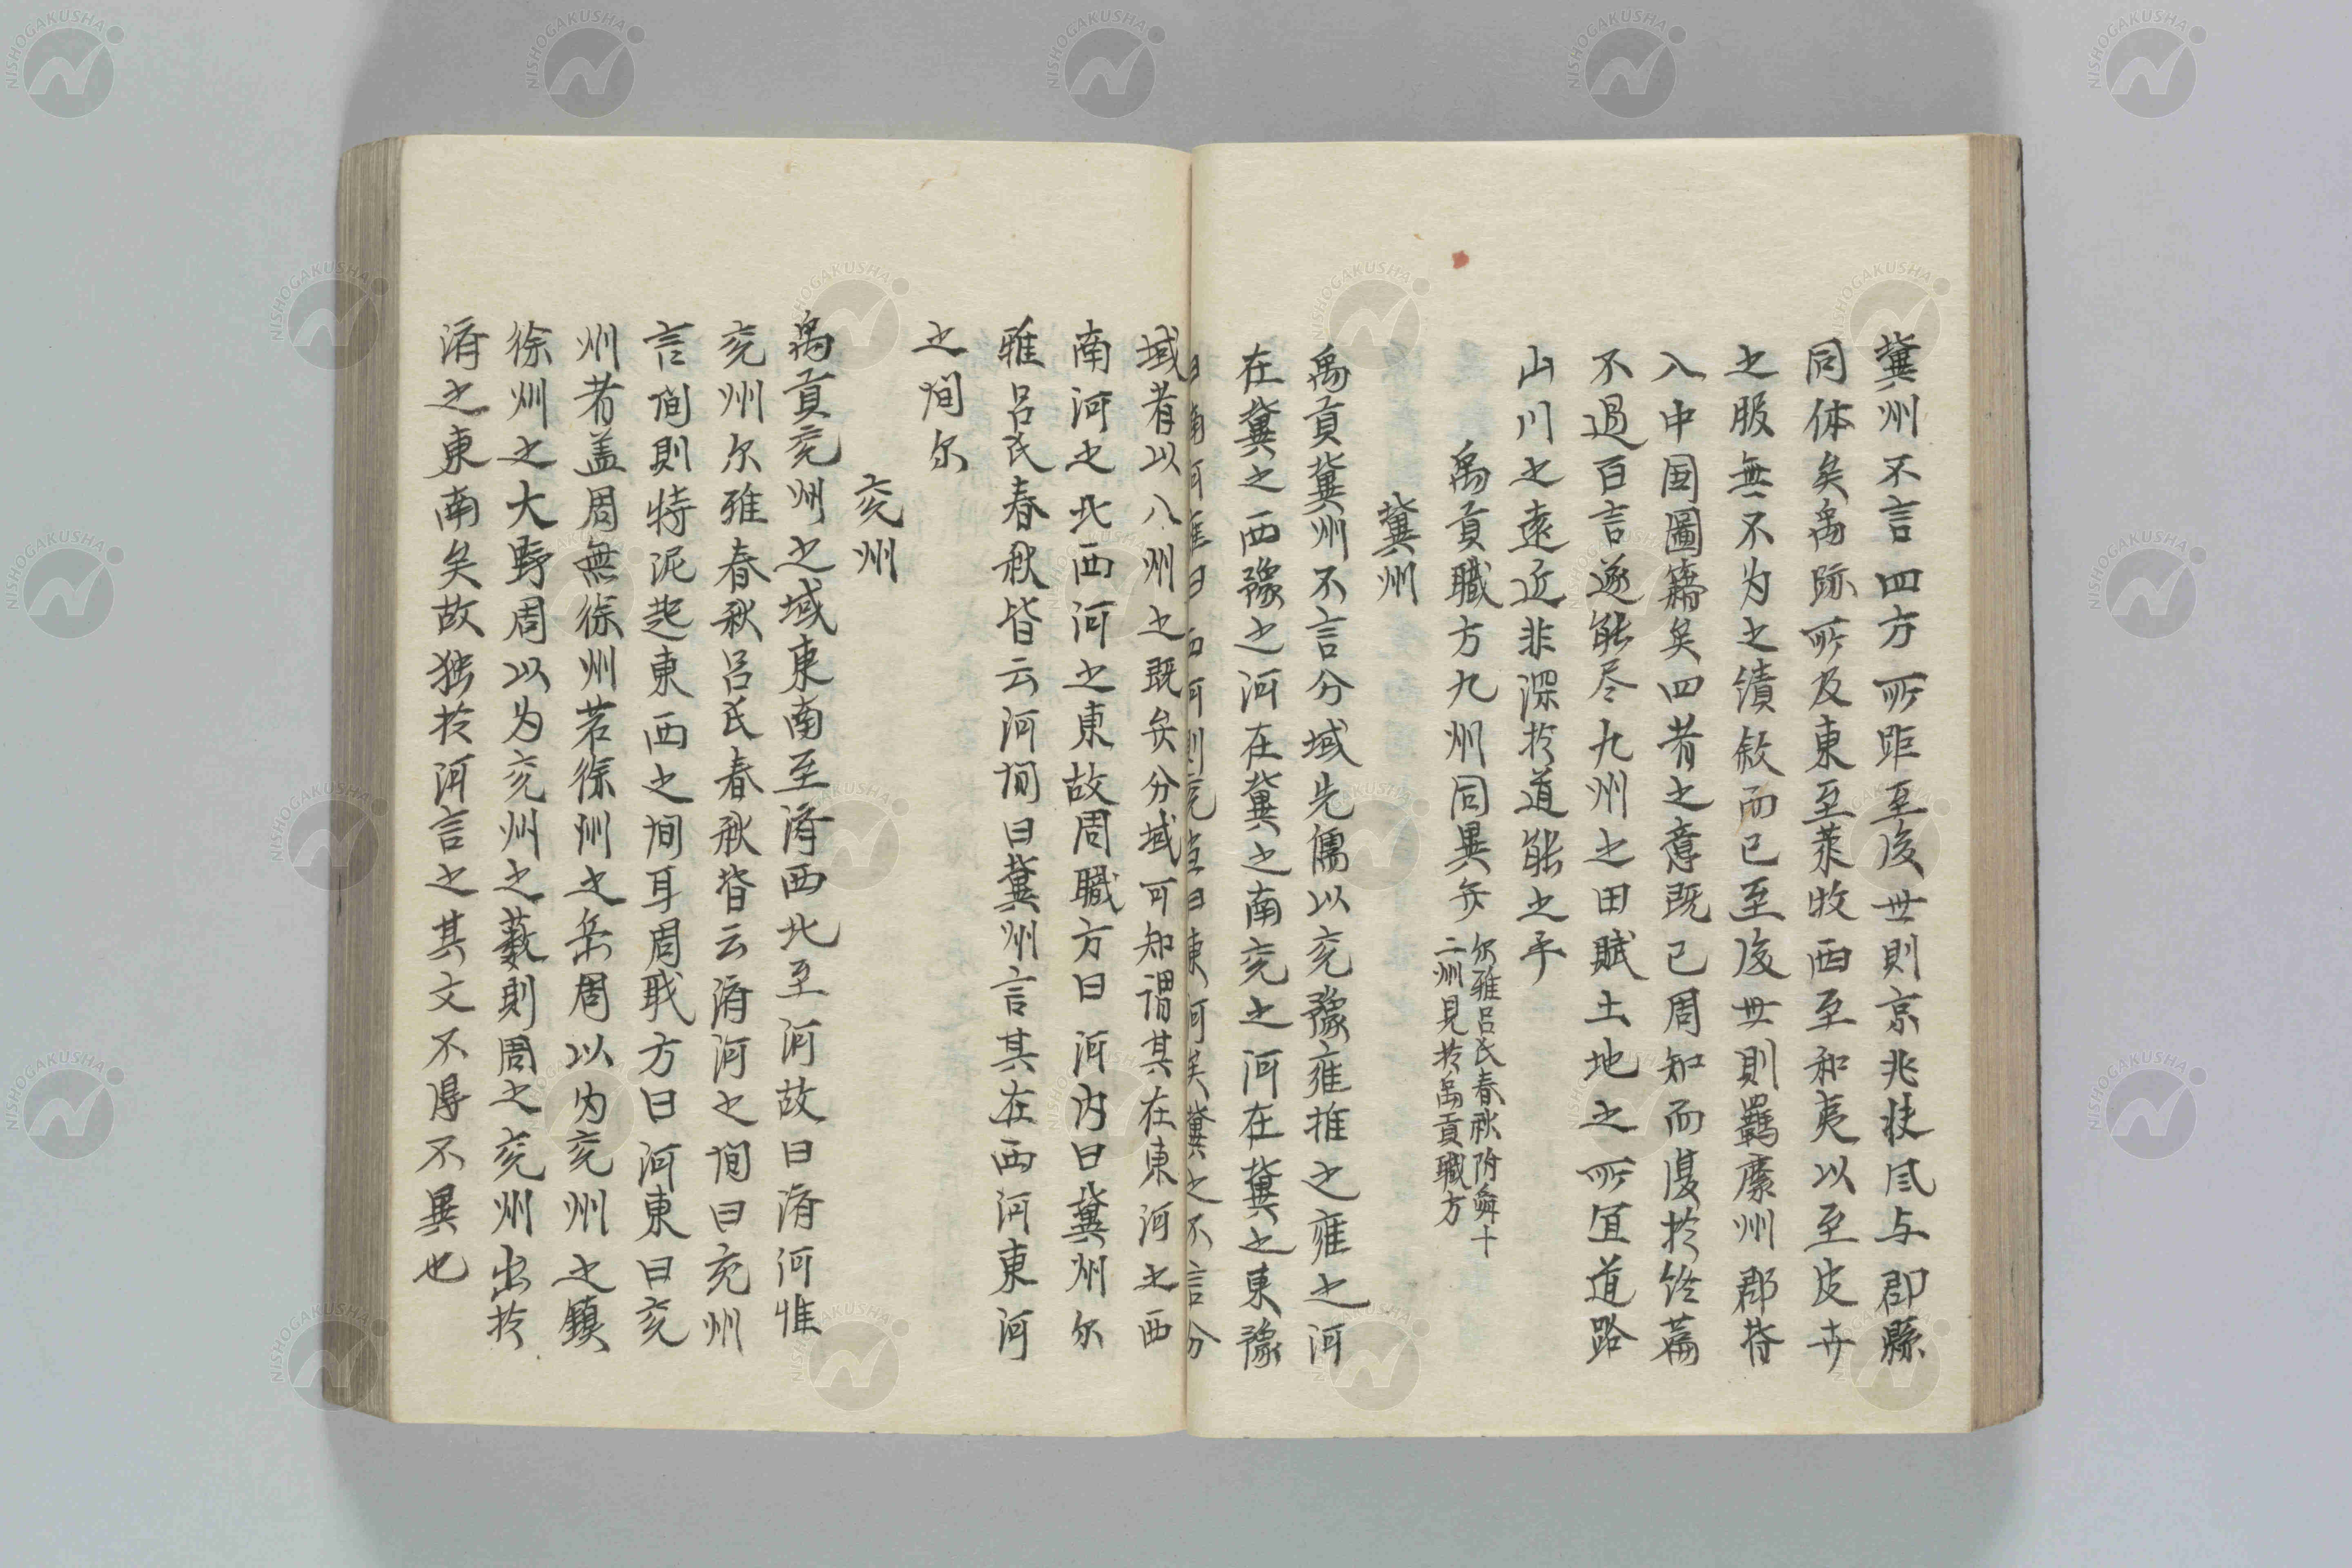 冀州不言四方所距至後世則京兆扶风与郡縣
同体矣禹跡所及東至莱牧西至和夷以至皮卉
之服無不为之績敍而已至後世則羈縻州郡持
入中国圖籍矣四者之意既已周知而復扵終篇
不過百言遂能尽九州之田賦土地之所宜道路
山川之遠近非深扵道能之乎
禹貢職方九州同異矣
尔雅吕氏春秋附舜十
二州見扵禹貢職方
冀州
禹貢冀州不言分域先儒以兖豫雍推之雍之河
在冀之西豫之河在冀之南兖之河在冀之東豫
曰南河雍曰西河則兖宜曰東河矣冀之不言分
域者以八州之既矣分域可知謂其在東河之西
南河之北西河之東故周職方曰河内曰冀州尔
雅吕氏春秋皆云河间曰冀州言其在西河東河
之间尔
兖州
禹貢兖州之域東南至濟西北至河故曰濟河惟
兖州尔雅春秋吕氏春秋皆云濟河之间曰兖州
言间則特泥起東西之间耳周职方曰河東曰兖
州者盖周無徐州若徐州之岳周以为兖州之鎮
徐州之大野周以为兖州之藪則周之兖州出扵
濟之東南矣故独扵河言之其文不得不異也
NISHOGAKUSHA